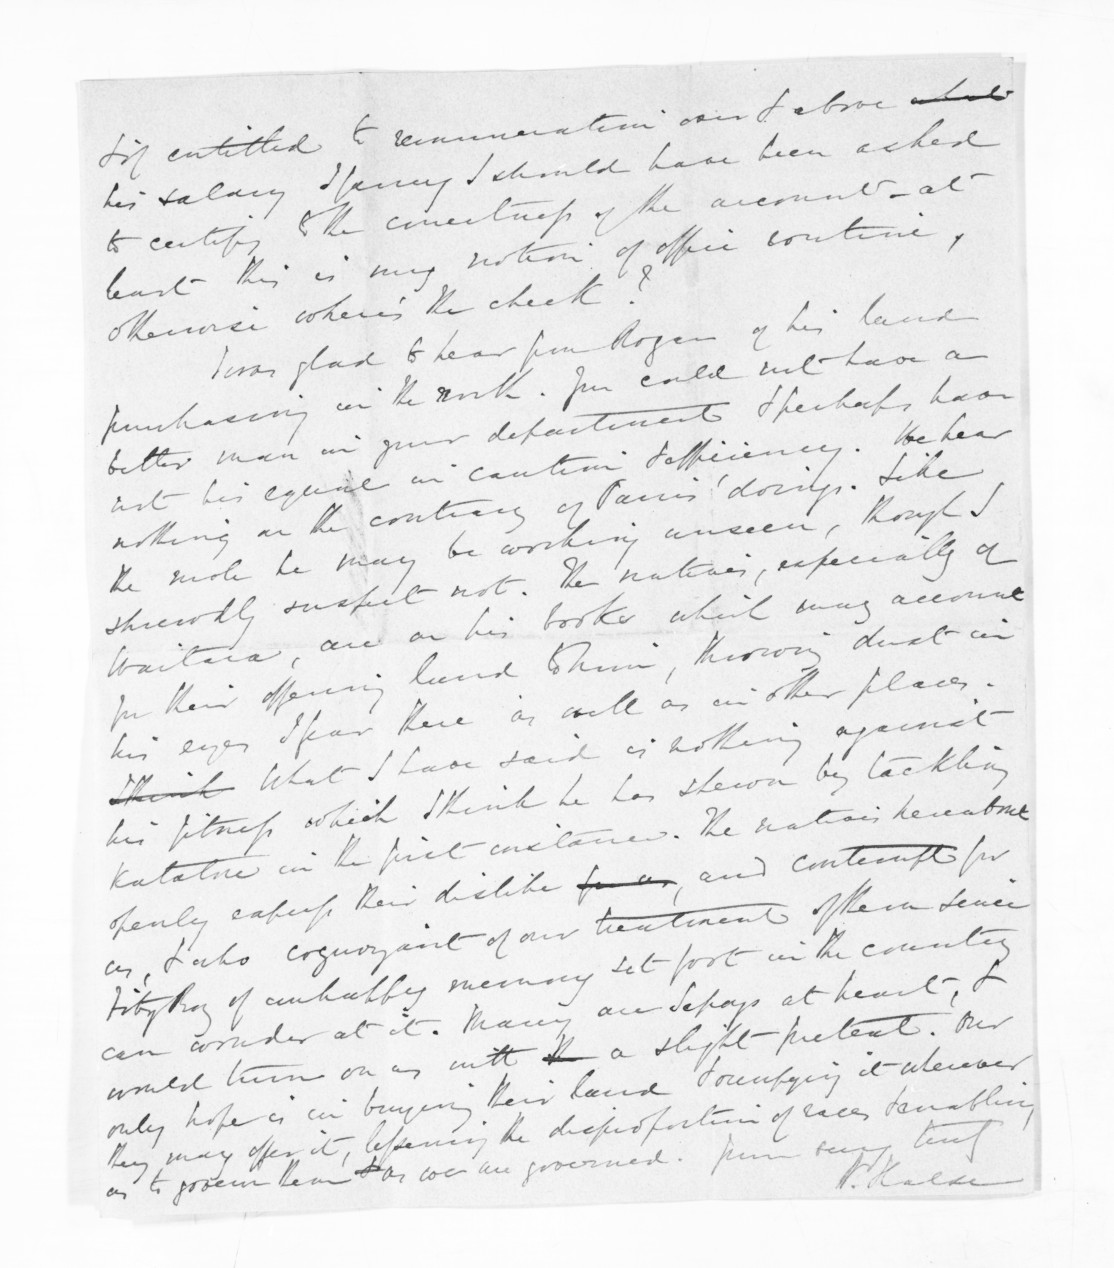 & if entitled to remuneration over & above what
his salary I fancy I should have been asked
to certify to the correctness of the account - at
least this is my notion of office routine,
otherwise where's the check?
I was glad to hear from Rogan of his land
purchasing in the north. You could not have a
better man in your department & perhaps have
not his equal in caution & efficiency. We hear
nothing on the contrary of Parris' doings. Like
the mole he may be working unseen, though I
shrewdly suspect not. The natives, especially of
Waitara, are on his books which may account
for their offering land to him, throwing dust in
his eyes I fear there as well as in other places.
I think What I have said is nothing against
his fitness which I think he has shewn by tackling
Katatore in the first instance. The natives hereabout
openly express their dislike for us, and contempt for
us, & who cognizant of our treatment of them since
Fitz Roy of unhappy memory set foot in the country
can wonder at it. Many are Sepoys at heart, &
would turn on us with a slight pretext. Our
only hope is in buying their land & occupying it whenever
they may offer it, lessening the disproportion of races & enabling
us to govern them & as we are governed. Yours very truly
W. Halse